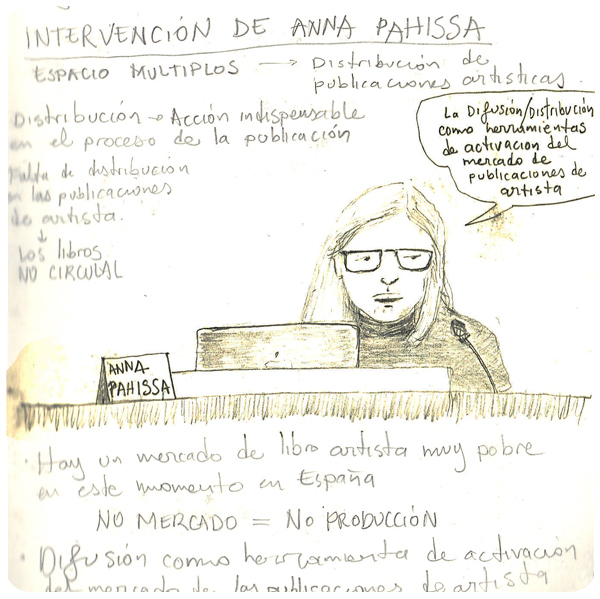 INTERVENCIÓN DE ANNA PAHISSA
ESPACIO MULTIPLOS → Distribución de
publicaciones artisticas.
Distribución → Acción indispensable
en el proceso de la publicación
Falta de distribución
en las publicaciones
de artista.
↓
LOS libros
NO CIRCULAL
La Difusión/Distribución
como herramientas
de activacion del
mercado de
publicaciones de
artista
ANNA
PAHISSA
· Hay un mercado de libro artista muy pobre
en este momento en España
NO MERCADO = NO PRODUCCIÓN
· Difusión como herramienta de activación
del mercado de las publicaciones de artista